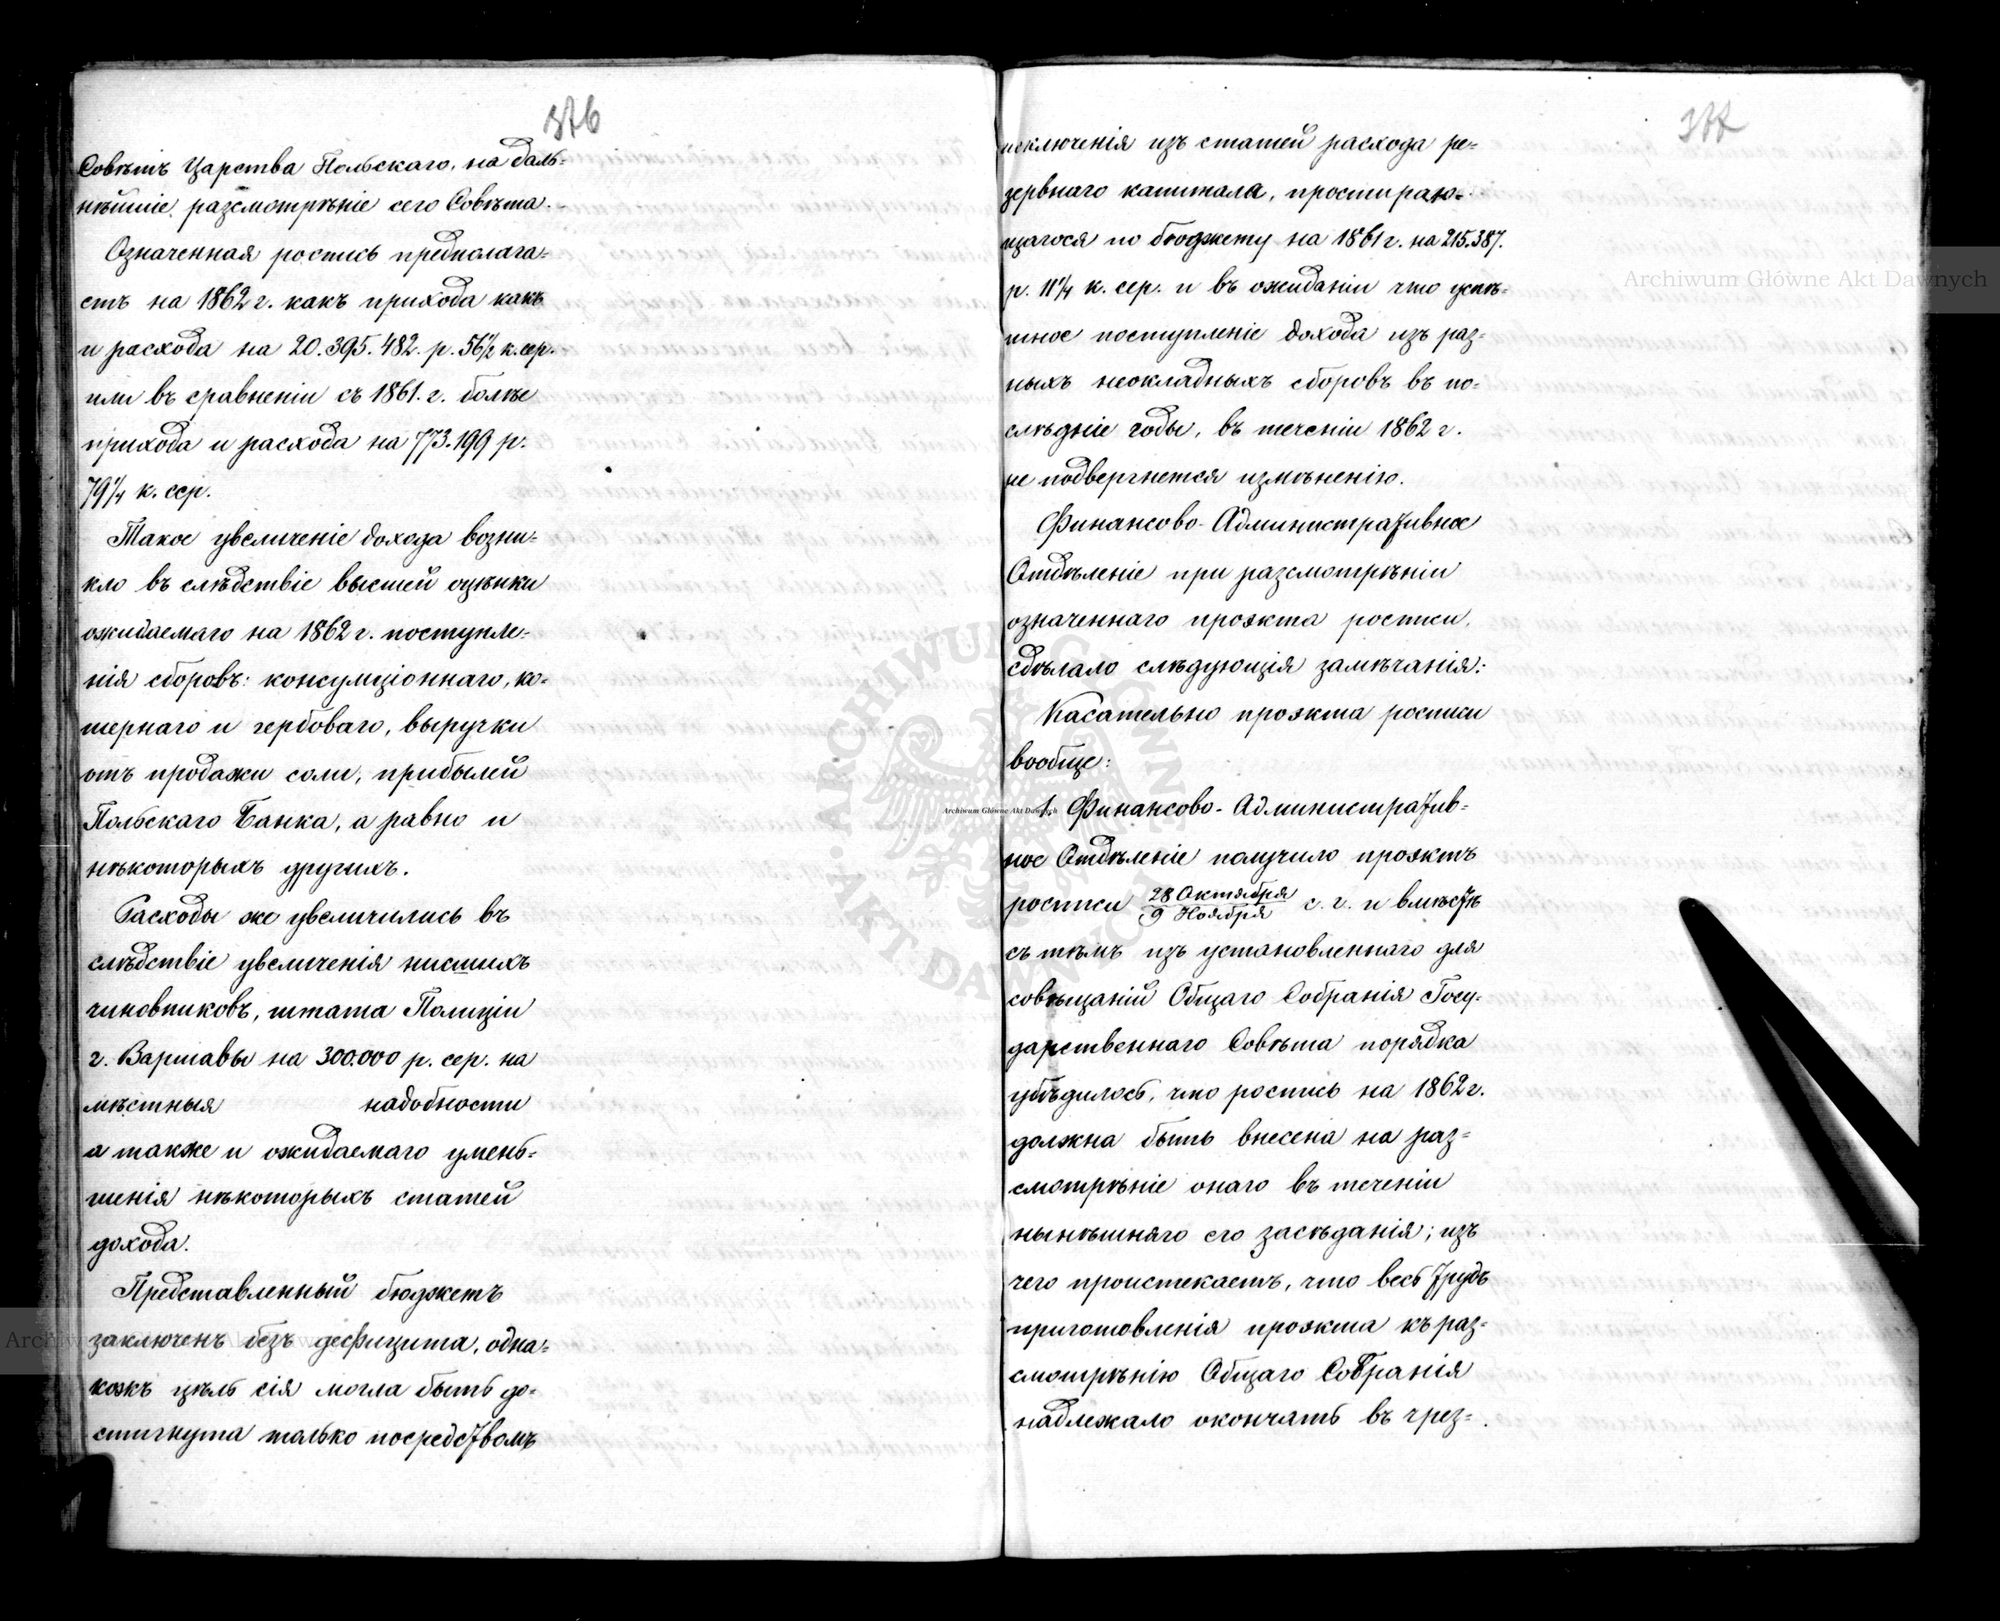 376
Совѣтъ Царства Польскаго, на даль-
нѣйшіе разсмотрѣніе сего Совѣта.
Означенная роспись предполага-
етъ на 1862 г. какъ прихода какъ
и расхода на 20.395.482. р. 56½ к. сер.
или въ сравненіи съ 1861. г. болѣе
прихода и расхода на 773.199 р.
79¼ к. сер.
Такое увеличеніе дохода возни-
кло въ слѣдствіе высшей оцѣнки
ожидаемаго на 1862 г. поступле-
нія сборовъ: консумціоннаго, ко-
шернаго и гербоваго, выручки
отъ продажи соли, прибылей
Польскаго Банка, а равно и
нѣкоторыхъ другихъ.
Расходы же увеличились въ
слѣдствіе увеличенія нисшихъ
чиновниковъ, штата Полиціи
г. Варшавы на 300.000 р. сер. на
мѣстныя надобности
а также и ожидаемаго умень-
шенія нѣкоторыхъ статей
дохода.
Представленный бюджетъ
заключенъ безъ дефицита, одна-
кожъ цѣль сія могла быть до-
стигнута только посредствомъ
377
исключенія изъ статей расхода ре-
зервнаго капитала, простираю-
щагося по бюджету на 1861 г. на 215.387.
р. 11¼ к. сер. и въ ожиданіи что успѣ-
шное поступленіе дохода изъ раз-
ныхъ неокладныхъ сборовъ въ по-
слѣдніе годы, въ теченіи 1862 г.
не подвергнется измѣненію.
Финансово-Административное
Отдѣленіе при разсмотрѣніи
означеннаго проэкта росписи,
сдѣлало слѣдующія замѣчанія:
Касательно проэкта росписи
вообще:
1. Финансово-Административ-
ное Отдѣленіе получило проэктъ
росписи 28 Октября / 9 Ноября с. г. и вмѣстѣ
съ тѣмъ изъ установленнаго для
совѣщаній Общаго Собранія Госу-
дарственнаго Совѣта порядка
убѣдилось, что роспись на 1862 г.
должна быть внесена на раз-
смотрѣніе онаго въ теченіи
нынѣшняго его засѣданія; изъ
чего проистекаетъ, что весь трудъ
приготовленія проэкта къ раз-
смотрѣнію Общаго Собранія
надлежало окончать въ чрез-
Archiwum Główne Akt Dawnych
Archiwum Główne Akt Dawnych
Archiwum Główne Akt Dawnych
ARCHIWUM GŁÓWNE AKT DAWNYCH